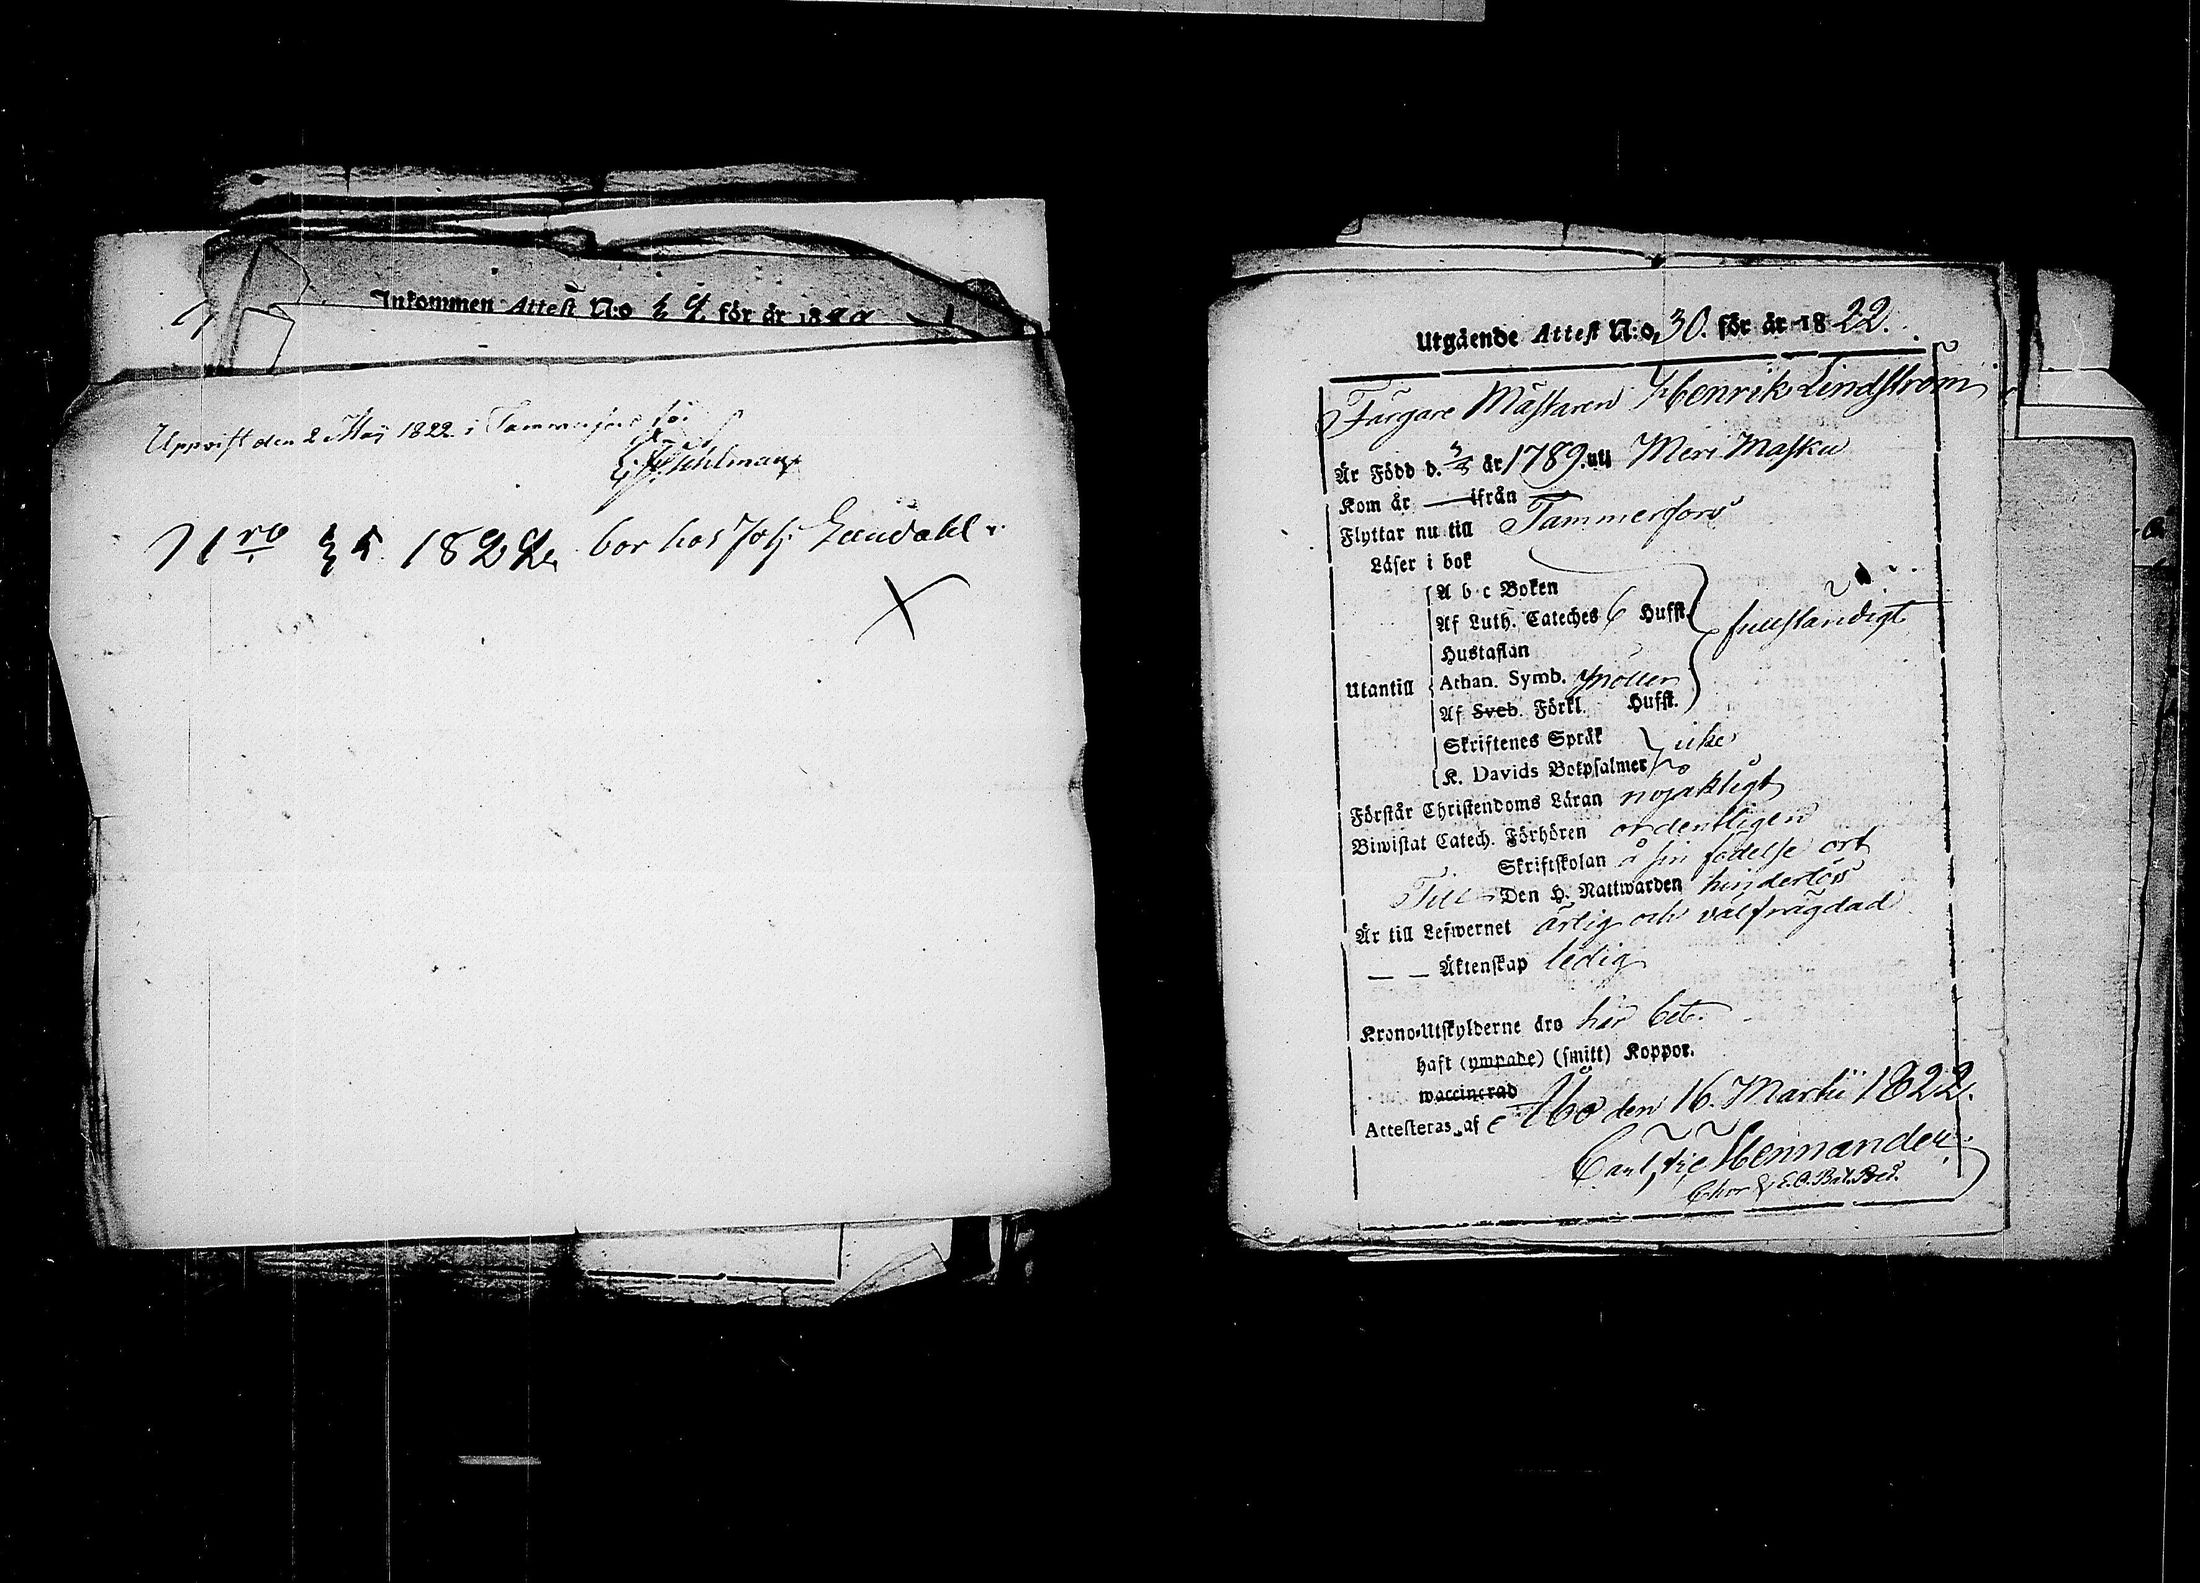 Inkommen Attest N:o för år 18
Uppvist den 2 Maij 1822 i Tammerfors för
Nro 1822. bor hos Joh:
X
Utgående Attest N:o 30. för år 1822.
Färgare Mästaren Henrik Lindström
Är Född d. 3/8 år 1789. uti Meri Masku
Kom år — ifrån —
Flyttar nu till Tammerfors
Läser i bok
A b c Boken
Af Luth. Cateches 6 Hufst.
fullständigt
Hustaflan
Utantill
Athan. Symb.
Af Sveb. Förkl. Hufst.
Skriftenes Språk
icke
K. Davids Botpsalmer
Förstår Christendoms Läran nöjaktligt
Biwistat Catech. Förhören ordentligen
Skriftskolan å sin födelse ort
Till Den H. Nattwarden hinderlös
Är till Lefwernet ärlig och välfrägdad
— — Äktenskap ledig
Krono-Utskylderne äro här bet.
haft (ympade) (smitt) Koppor.
waccinerad
Attesteras af Åbo den 16. Martii 1822.
Hennander